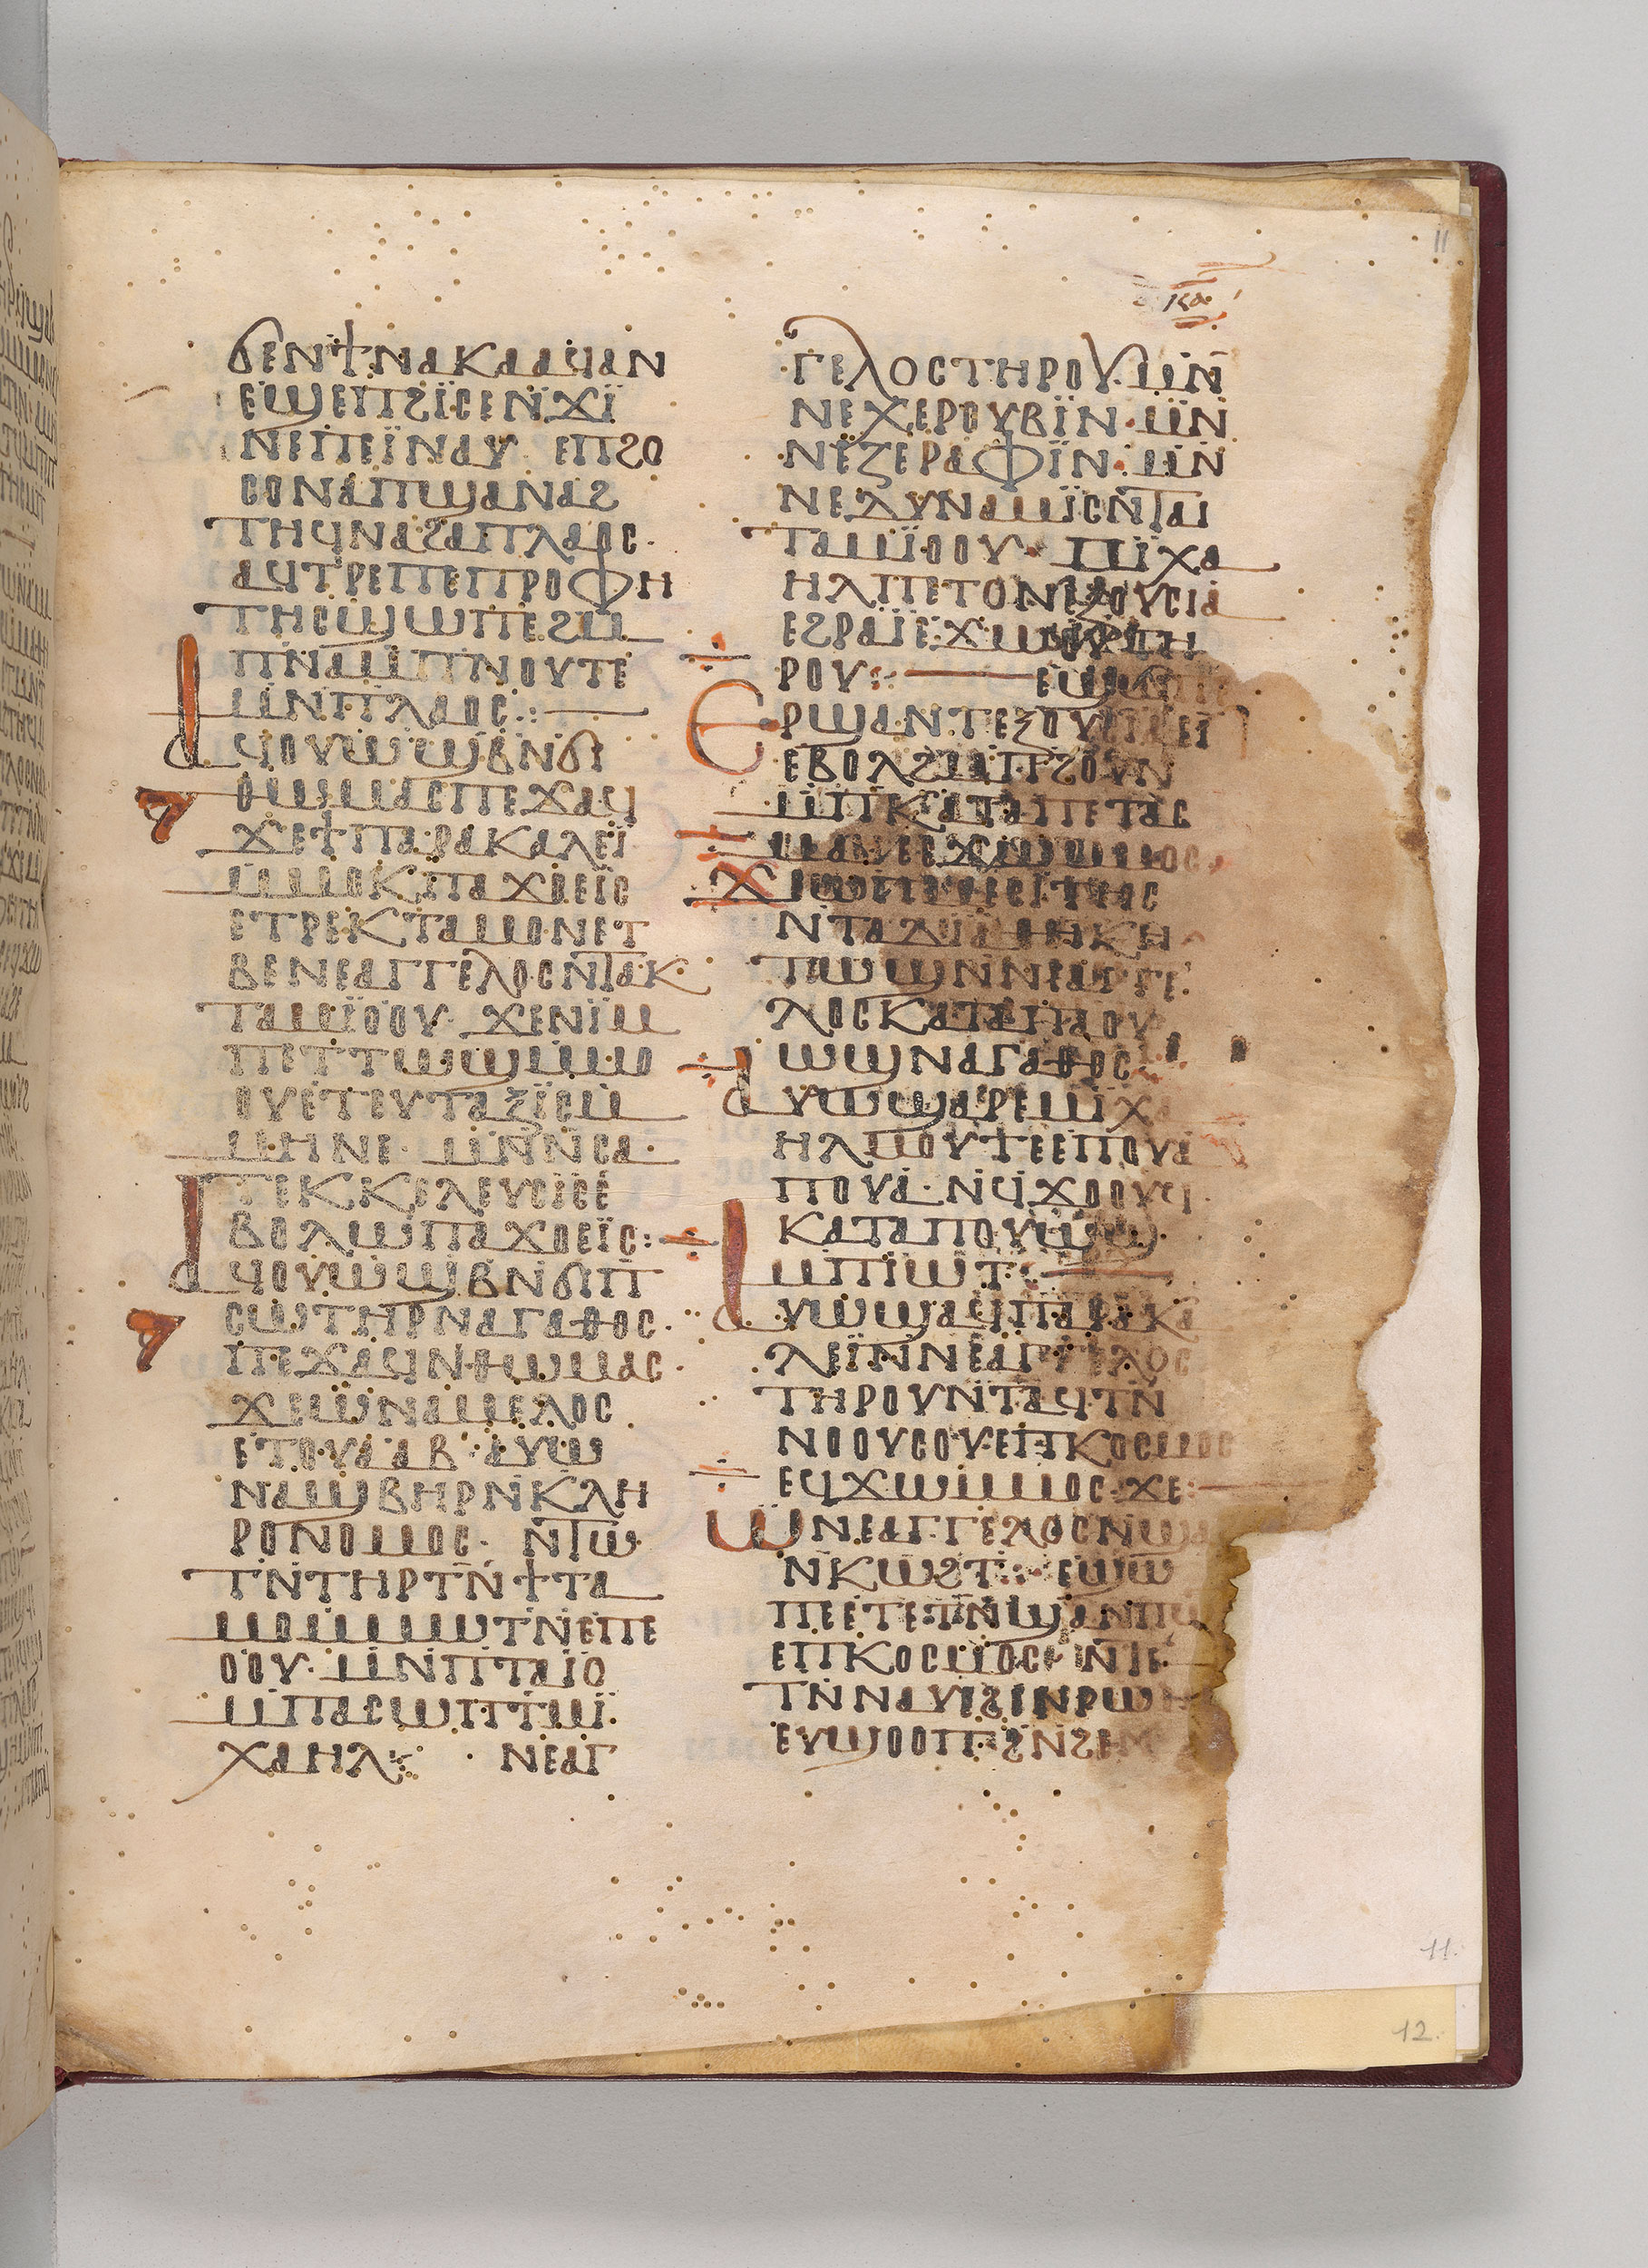 ⲕⲁ
ϭⲉⲛϯⲛⲁⲕⲁⲁϥⲁⲛ
ⲉϣⲉⲡϩⲓ̈ⲥⲉⲛ̄ϫⲓ̈
ⲛⲉⲡⲉⲓ̈ⲛⲁⲩ ⲉⲡϩⲟ
ⲥⲟⲛⲁⲡϣⲁⲛⲁϩ
ⲧⲏϥⲛⲁϩⲁⲡⲗⲁⲟⲥ·
ⲁϥⲧⲣⲉⲡⲉⲡⲣⲟⲫⲏ
ⲧⲏⲥϣⲱⲡⲉϩⲙ
ⲡⲛⲁⲙ̄ⲡⲛⲟⲩⲧⲉ
ⲙⲛⲡⲗⲁⲟⲥ:
ⲁϥⲟⲩⲱϣⲃⲛ̄ϭⲓ
ⲑⲱⲙⲁⲥⲡⲉϫⲁϥ
ϫⲉϯⲡⲁⲣⲁⲕⲁⲗⲉⲓ̈
ⲙ̄ⲙⲟⲕⲡⲁϫⲟⲉⲓ̈ⲥ
ⲉⲧⲣⲉⲕⲧⲁⲙⲟⲛⲉⲧ
ⲃⲉⲛⲉⲁⲅⲅⲉⲗⲟⲥⲛ̄ⲧⲁⲕ
ⲧⲁⲙⲓ̈ⲟⲟⲩ· ϫⲉⲛⲓ̈ⲙ
ⲡⲉⲧⲧⲱϣⲙ̄ⲙⲟ
ⲟⲩⲉⲧⲉⲩⲧⲁⲝⲓ̈ⲥⲙ̄
ⲙⲏⲛⲉ· ⲙⲛ̄ⲛ̄ⲥⲁ·
ⲧⲉⲕⲕⲉⲗⲉⲩⲥⲓ̈ⲥⲉ
ⲃⲟⲗⲱⲡⲁϫⲟⲉⲓ̈ⲥ:
ⲁϥⲟⲩⲱϣⲃⲛ̄ϭⲓⲡ
ⲥⲱⲧⲏⲣⲛⲁⲅⲁⲑⲟⲥ·
ⲡⲉϫⲁϥⲛ̄ⲑⲱⲙⲁⲥ·
ϫⲉⲱ̈ⲛⲁⲙⲉⲗⲟⲥ
ⲉⲧⲟⲩⲁⲁⲃ· ⲁⲩⲱ
ⲛⲁϣⲃⲏⲣⲛ̄ⲕⲗⲏ
ⲣⲟⲛⲟⲙⲟⲥ· ⲛ̄ⲧⲱ
ⲧⲛ̄ⲧⲏⲣⲧⲛ̄ϯⲧⲁ
ⲙⲟⲙ̄ⲙⲱⲧⲛ̄ⲉⲡⲉ
ⲟⲟⲩ· ⲙⲛ̄ⲡⲧⲁⲓ̈ⲟ
ⲙ̄ⲡⲁⲥⲱⲧⲡⲙⲓ̈
ⲭⲁⲏⲗ: · ⲛⲉⲁⲅ
ⲅⲉⲗⲟⲥⲧⲏⲣⲟⲩ·ⲙⲛ̄
ⲛⲉⲭⲉⲣⲟⲩⲃⲓ̈ⲛ·ⲙⲛ̄
ⲛⲉⲍⲉⲣⲁⲫⲓ̈ⲛ·ⲙⲛ̄
ⲛⲉⲇⲩⲛⲁⲙⲓ̈ⲥⲛ̄ⲧⲁⲓ
ⲧⲁⲙⲓ̈ⲟⲟⲩ· ⲙⲓ̈ⲭⲁ
ⲏⲗⲡⲉⲧⲟⲛⲉⲝⲟⲩⲥⲓⲁ
ⲉϩⲣⲁⲓ̈ⲉϫⲱⲟⲩⲧⲏ
ⲣⲟⲩ: ⲉϣⲱⲡⲉ
ⲉⲣϣⲁⲛⲧⲉⲝⲟⲩⲥⲓⲁⲉⲓ
ⲉⲃⲟⲗϩⲙⲡϩⲟⲩⲛ
ⲙ̄ⲡⲕⲁⲧⲁⲡⲉⲧⲁⲥ
ⲙⲁ
ⲛ̄ⲧⲁⲇⲓⲁⲑⲏⲕⲏ
ⲧⲱϣⲛ̄ⲛⲉⲁⲅⲅⲉ
ⲗⲟⲥⲕⲁⲧⲁⲡⲁⲟⲩ
ⲱϣⲛⲁⲅⲁⲑⲟⲥ
ⲁⲩⲱϣⲁⲣⲉⲙⲓ̈ⲭⲁ
ⲏⲗⲙⲟⲩϯⲉⲉⲡⲟⲩⲁ
ⲡⲟⲩⲁ·ⲛϥϫⲟⲟⲩϥ
ⲕⲁⲧⲁⲡⲟⲩⲱϣ
ⲙ̄ⲡⲓⲱⲧ:
ⲁⲩⲱϣⲁϥⲡⲁⲣⲁⲕⲁ
ⲗⲉⲓ̈ⲛ̄ⲛⲉⲁⲅⲅⲉⲗⲟⲥ
ⲧⲏⲣⲟⲩⲛ̄ⲧⲁϥⲧⲛ̄
ⲛⲟⲟⲩⲥⲟⲩⲉⲡⲕⲟⲥⲙⲟⲥ
ⲉϥϫⲱⲙ̄ⲙⲟⲥ·ϫⲉ:
ⲱ̈ⲛⲉⲁⲅⲅⲉⲗⲟⲥⲛ̄ϣⲁ
ⲛ̄ⲕⲱϩⲧ: ⲉϣⲱ
ⲡⲉⲉⲧⲉⲧⲛ̄ϣⲁⲛⲡⲱ
ⲉⲡⲕⲟⲥⲙⲟⲥ·ⲛ̄ⲧⲉ
ⲧⲛ̄ⲛⲁⲩⲉϩⲉⲛⲣⲱⲙ
ⲉⲩϣⲟⲟⲡ·ϩⲛ̄ϩⲉⲛ